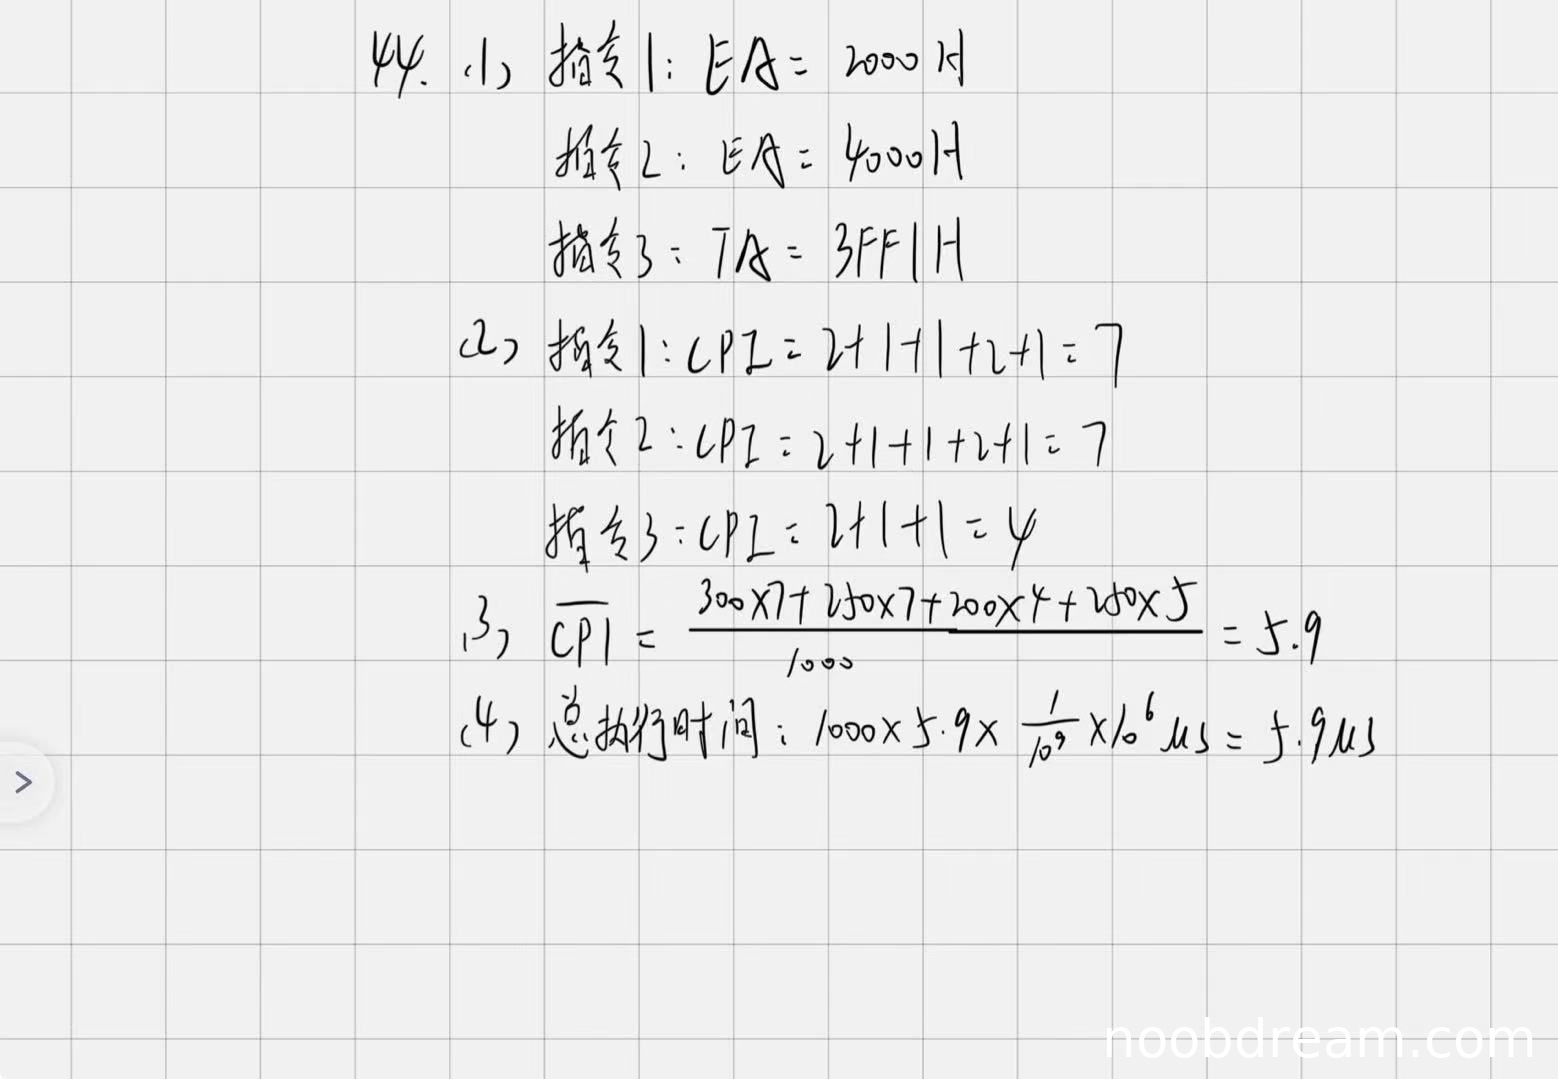 44. (1) 指令1: EA = 2000H
指令2: EA = 4000H
指令3: TA = 3FF1H
(2) 指令1: CPI = 2+1+1+2+1 = 7
指令2: CPI = 2+1+1+2+1 = 7
指令3: CPI = 2+1+1 = 4
(3) \overline{CPI} = \frac{300×7+250×7+200×4+250×5}{1000} = 5.9
(4) 总执行时间: 1000×5.9×\frac{1}{10^9}×10^6 μs = 5.9μs
noobdream.com